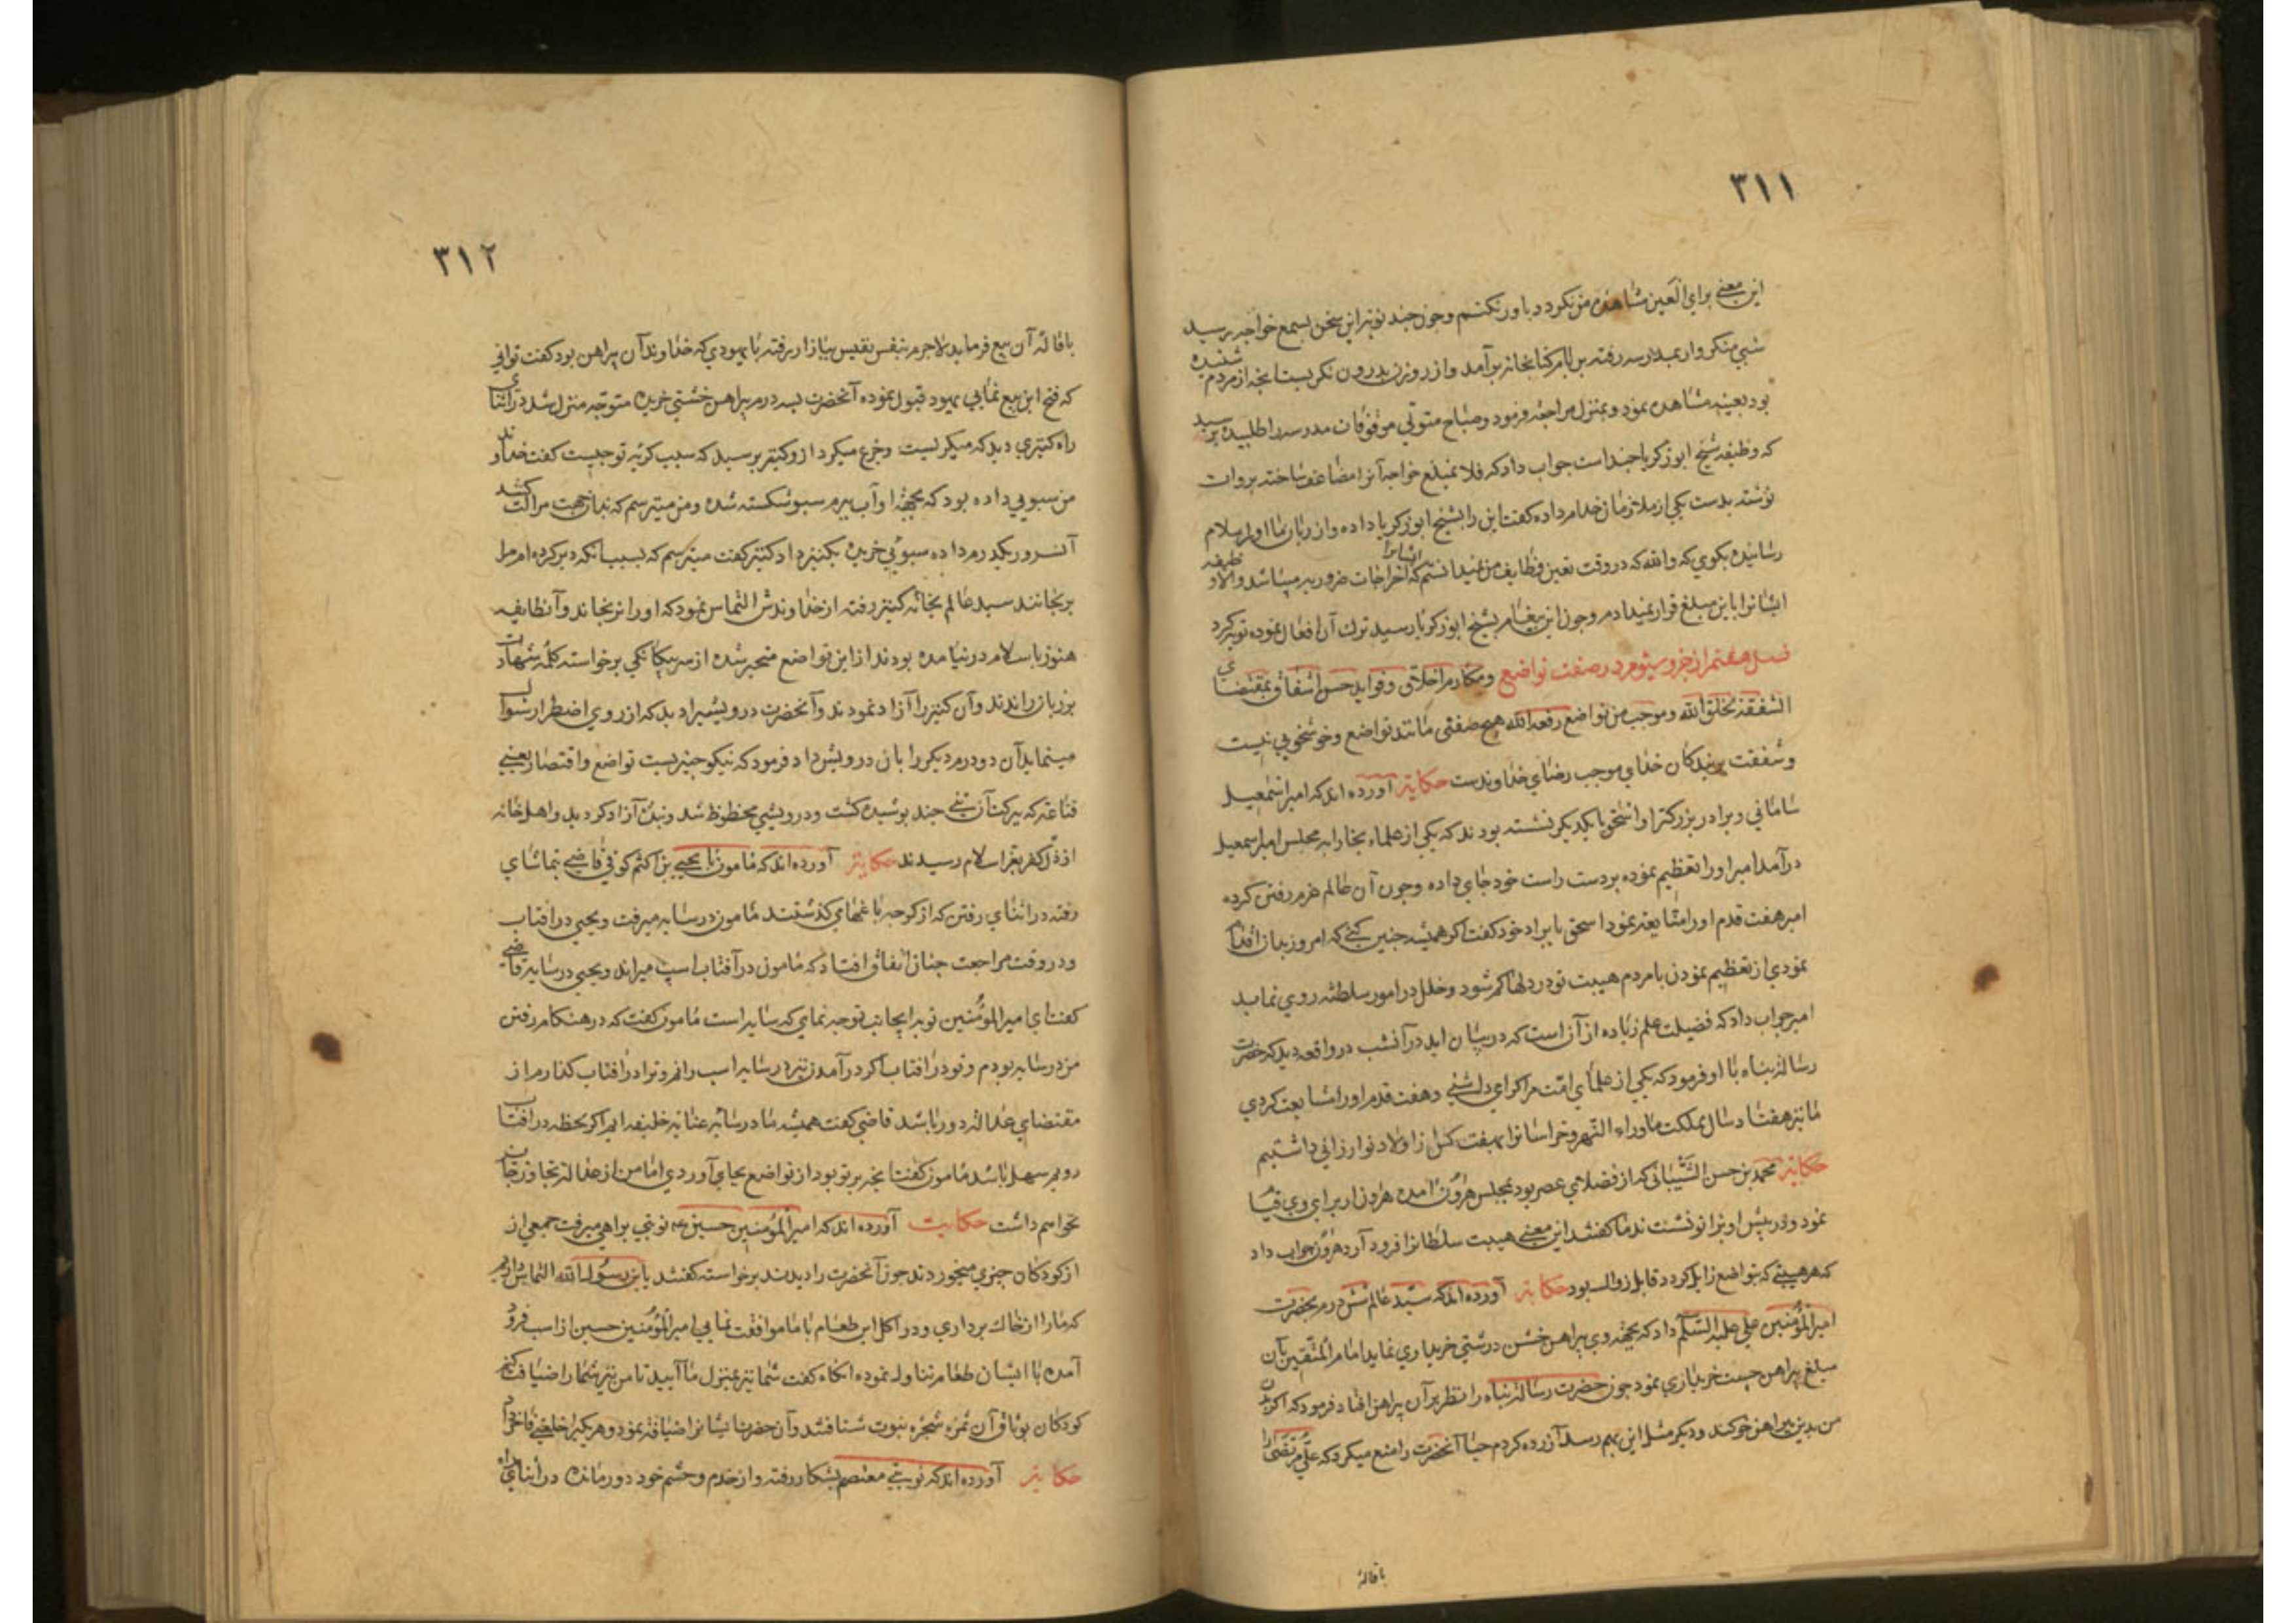 ٣١١
این معنی برای العین مشاهده من نکردد باور نکنم وچون چند نوبت این سخن بسمع خواجه رسید
شبی متنکر وار بمدرسه رفته بر بام کتابخانه برآمد واز روزن بدرون نکریست آنچه از مردم شنیده
بود بعینه مشاهده نمود وبمنزل مراجعه فرمود وصباح متولی موقوفات مدرسه را طلبیده پرسید
که وظیفه شیخ ابوزکریا چنداست جواب داد که فلان مبلغ خواجه آنرا مضاعف ساخته بروات
نوشته بدست یکی از ملازمان خدام داده کفت این را بشیخ ابوزکریا داده واز زبان ما اورا سلام
رسانیده بکوی که والله که در وقت تعین وظایف من نمیدانستم که ایشانرا اخراجات ضروریه میباشد والا وظیفه
ایشانرا باین مبلغ قرار نمیدادم وچون این پیغام بشیخ ابوزکریا رسید ترک آن افعال نموده توبه کرد
فصل هفتم از جزو سیوم در صفت تواضع ومکارم اخلاق وفواید حسن اشفاق بمقتضای
الشفقة بخلق الله وموجب من تواضع رفعه الله هیچ صفتی مانند تواضع وخوشخویی نیست
وشفقت بر بندکان خدای موجب رضای خداوندست حکایة آورده اند که امیر اسمعیل
سامانی وبرادر بزرکتر او اسحق بایکدیکر نشسته بودند که یکی از علماء بخارا به مجلس امیر اسمعیل
درآمد امیر اورا تعظیم نموده بردست راست خود جای داده وچون آن عالم عزم رفتن کرده
امیر هفت قدم اورا متابعة نمود اسحق با برادر خود کفت اکر همیشه چنین کنی که امروز بدان اقدام
نمودی از تعظیم نمودن بامردم هیبت تو در دلها کم شود وخلل در امور سلطنه روی نماید
امیر جواب داد که فضیلت علم زیاده از آن است که در بیان اید در آنشب در واقعه دید که حضرت
رسالة پناه با او فرمود که یکی از علمای امت مرا کرامی داشتی وهفت قدم اورا مشایعت کردی
ما نیز هفتاد سال مملکت ماوراء النهر وخراسانرا بهفت کس از اولاد تو ارزانی داشتیم
حکایة محمد بن حسن الشیبانی که از فضلای عصر بود بمجلس هرون آمده هرون از برای وی قیام
نمود ودر پیش او بزانو نشست ندما کفتند این معنی هیبت سلطانرا فرود آرد هرون جواب داد
که هر هیبتی که بتواضع زایل کردد قابل زوال بود حکایة آورده اند که سید عالم شش درم بحضرت
امیر المؤمنین علی علیه السلم داد که بجهه وی پیراهن خشن درشتی خریداری نماید امام المتقین بآن
مبلغ پیراهن چست خریداری نمود چون حضرت رسالة پناه را نظر بر آن پیراهن افتاد فرمود که اکر تن
من بدین پیراهن خو کند ودیکر مثل این بهم رسد آزرده کردم حیا آنحضرت را منع میکرد که علی مرتضی را
باقالهٔ
٣١٢
باقالهٔ آن بیع فرماید لاجرم بنفس نفیس ببازار رفته با یهودی که خداوند آن پیراهن بود کفت توانی
که فتح این بیع نمایی یهود قبول نموده آنحضرت بسه درم پیراهن خشتی خریده متوجه منزل شد در اثنای
راه کنیزی دید که میکریست وجزع میکرد از وکنیز پرسید که سبب کریه تو چیست کفت خداوند
من سبویی داده بود که بجهة او آب برم سبو شکسته شده ومن میترسم که بدانجهت مرا لت کشد
آنسرور یکدرم داده سبوئی خریده بکنیز داد کنیز کفت میترسم که بسبب آنکه دیر کرده ام مرا
برنجانند سید عالم بخانه کنیز رفته از خداوندش التماس نمود که اورا نرنجاند وآنطایفه
هنوز باسلام در نیامده بودند از این تواضع متحیر شده از سر بیکانکی برخواسته کلمه شهادت
بر زبان راندند وآن کنیز را آزاد نمودند وآنحضرت درویشیرا دید که از روی اضطرار سوال
مینماید آن دو درم دیکر را بآن درویش داد فرمود که نیکو چیزیست تواضع واقتصار یعنی
قناعة که ببرکت آن تنی چند پوشیده کشت ودرویشی محظوظ شد وبنده آزاد کردید واهل خانه
از ذل کفر بعز اسلام رسیدند حکایة آورده اند که مامون با یحیی بن اکثم کوفی قاضی بتماشای
رفته در اثنای رفتن که از کوچه باغهای کذشتند مامون در سایه میرفت ویحیی در افتاب
ودر وقت مراجعت چنان اتفاق افتاد که مامون در آفتاب اسپ میراند ویحیی در سایه قاضی
کفت ای امیر المؤمنین تو بدایجانب توجه نمای که سایه است مامون کفت که در هنکام رفتن
من در سایه بودم و تو در افتاب اکر در آمدن نیز در سایه اسب رانم وترا در افتاب کذارم از
مقتضای عدالة دور باشد قاضی کفت همیشه ما در سایه عنایة خلیفه ایم اکر لحظه در افتاب
رویم سهل باشد مامون کفت آنچه بر تو بود از تواضع بجای آوردی اما من از عدالة تجاوز جایز
نخواهم داشت حکایت آورده اند که امیر المؤمنین حسین عه نوبتی براهی میرفت جمعی از
از کودکان چیزی میخوردند چون آنحضرت را دیدند برخواسته کفتند یابن رسول الله التماس داریم
که ما را از خاک برداری ودر اکل این طعام با ما موافقت نمایی امیر المؤمنین حسین از اسب فرود
آمده با ایشان طعام تناول نموده آنکاه کفت شما نیز بمنزل ما آیید تا من نیز شما را ضیافت کنم
کودکان بوثاق آن ثمره شجره نبوت شتافتند وآن حضرت ایشانرا ضیافة نمود وهر یکیرا خلعتی فاخر داد
حکایة آورده اند که نوبتی معتصم بشکار رفته واز خدم وحشم خود دور مانده در اثنای راه